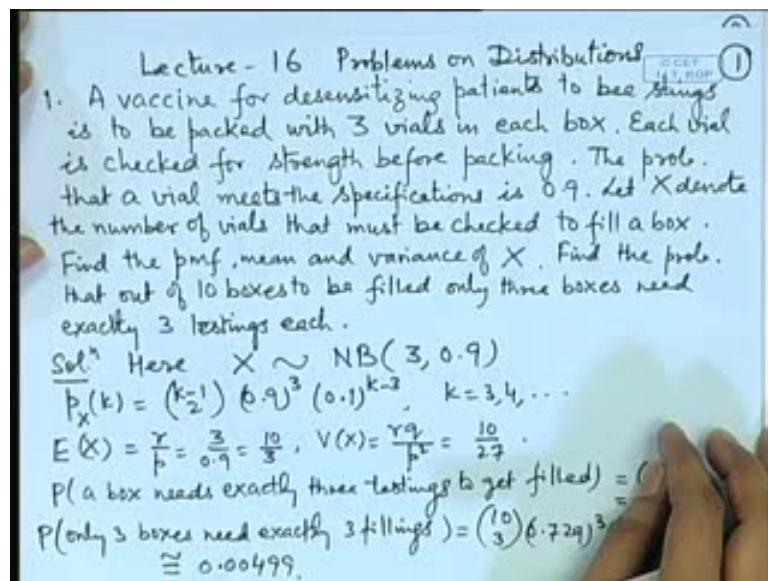 Lecture - 16 Problems on Distributions
1
1. A vaccine for desensitizing patients to bee stings
is to be packed with 3 vials in each box. Each vial
is checked for strength before packing. The prob.
that a vial meets the specifications is 0.9. Let X denote
the number of vials that must be checked to fill a box.
Find the pmf, mean and variance of X. Find the prob.
that out of 10 boxes to be filled only three boxes need
exactly 3 testings each.
Solⁿ Here X ~ NB(3, 0.9)
p_X(k) = (k-1 2) (0.9)^3 (0.1)^{k-3}, k = 3, 4, ...
E(X) = r/p = 3/0.9 = 10/3, V(X) = rq/p² = 10/27.
P(a box needs exactly three testings to get filled) = (
=
P(only 3 boxes need exactly 3 fillings) = (10 3)(.729)^3
≅ 0.00499.